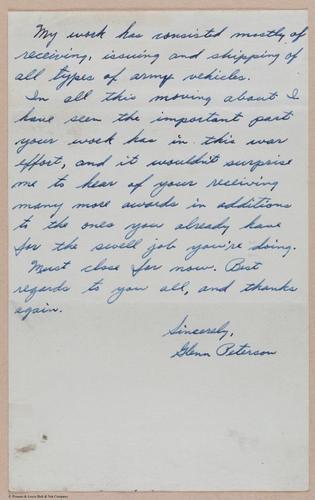 My work has consisted mostly of
receiving, issuing and shipping of
all types of army vehicles.
In all this moving about I
have seen the important part
your work has in this war
effort, and it wouldn't surprise
me to hear of your receiving
many more awards in additions
to the ones you already have
for the swell job you're doing.
Must close for now. Best
regards to you all, and thanks
again.
Sincerely,
Glenn Peterson